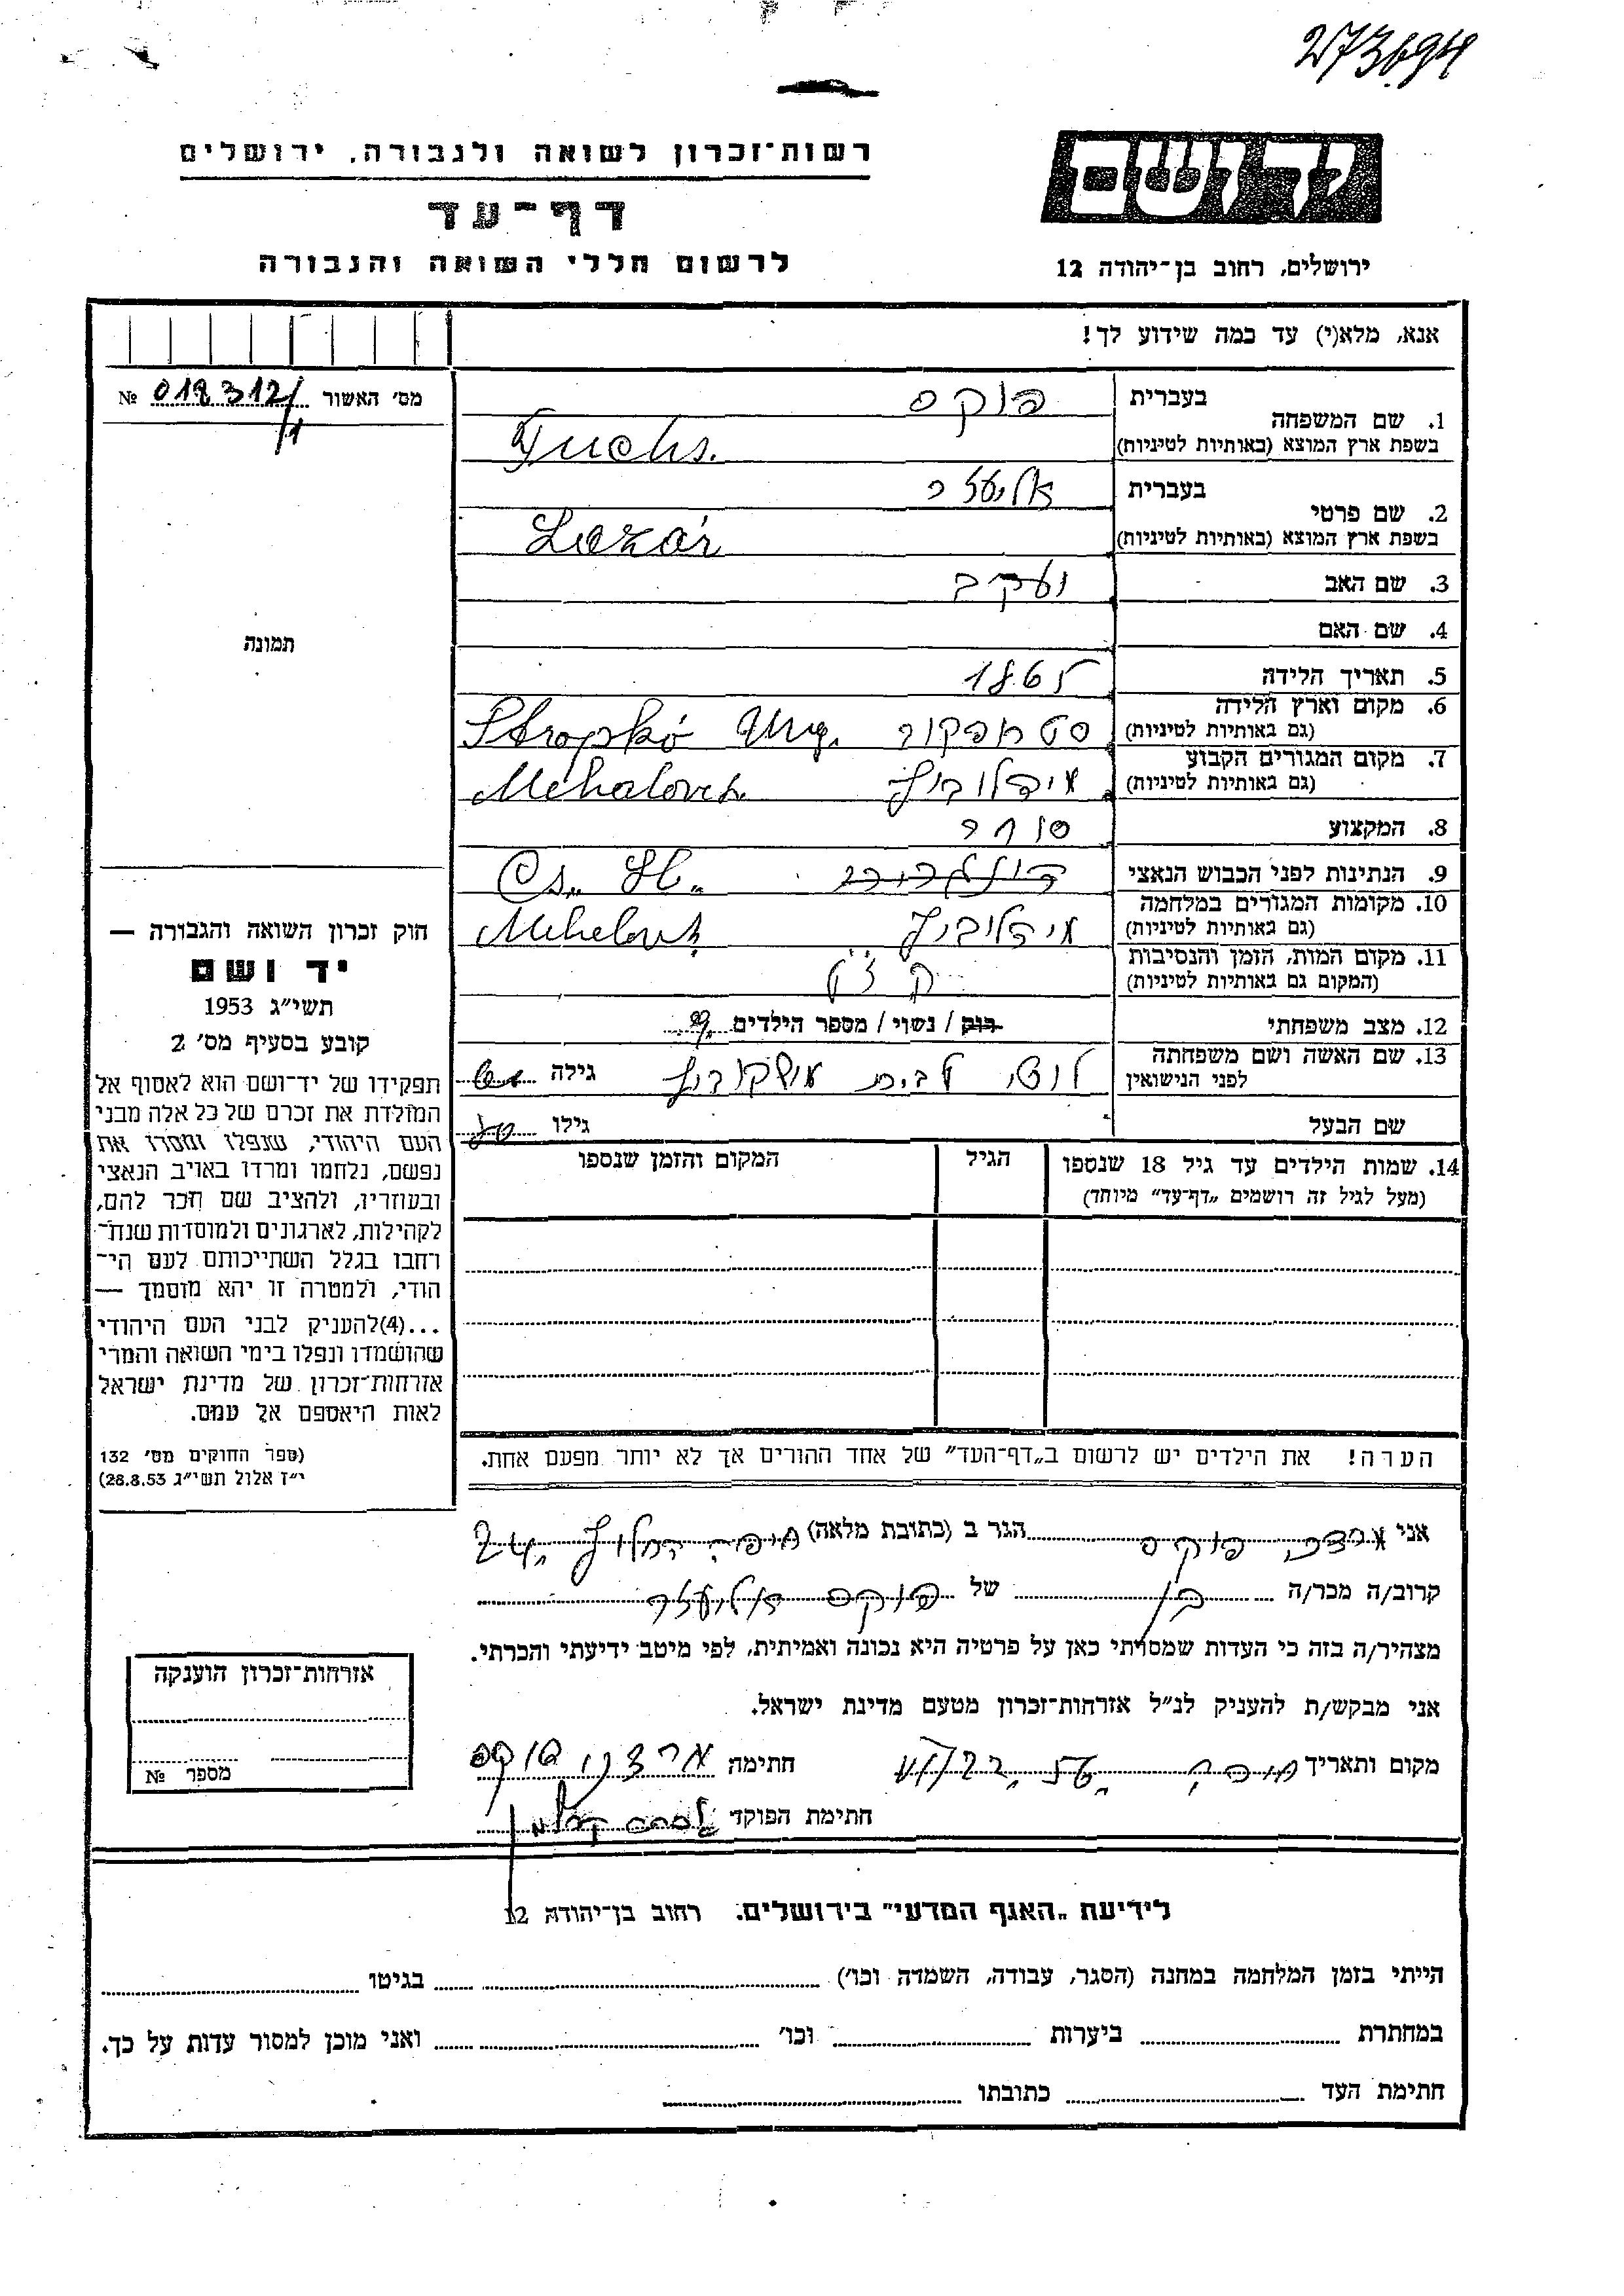 273694
רשות־זכרון לשואה ולגבורה, ירושלים
יד ושם
דף־עד
לרשום חללי השואה והגבורה
ירושלים, רחוב בן־יהודה 12
אנא, מלא(י) עד כמה שידוע לך!
מס׳ האשור № 018312/1
1. שם המשפחה
בעברית פוקס
בשפת ארץ המוצא (באותיות לטיניות) Fuchs.
2. שם פרטי
בעברית
בשפת ארץ המוצא (באותיות לטיניות) Lazár
3. שם האב יעקב
4. שם האם
תמונה
5. תאריך הלידה 1865
6. מקום וארץ הלידה
(גם באותיות לטיניות) Stropkó
7. מקום המגורים הקבוע
(גם באותיות לטיניות) Mehalovch
8. המקצוע סוחר
9. הנתינות לפני הכבוש הנאצי Cs. Sl.
10. מקומות המגורים במלחמה
(גם באותיות לטיניות)
11. מקום המות, הזמן והנסיבות
(המקום גם באותיות לטיניות)
12. מצב משפחתי רוק / נשוי / מספר הילדים 9
13. שם האשה ושם משפחתה
לפני הנישואין גילה
שם הבעל גילו
14. שמות הילדים עד גיל 18 שנספו הגיל המקום והזמן שנספו
(מעל לגיל זה רושמים „דף־עד״ מיוחד)
הערה! את הילדים יש לרשום ב„דף־העד״ של אחד ההורים אך לא יותר מפעם אחת.
חוק זכרון השואה והגבורה —
יד ושם
תשי״ג 1953
קובע בסעיף מס׳ 2
תפקידו של יד־ושם הוא לאסוף אל
המולדת את זכרם של כל אלה מבני
העם היהודי, שנפלו ומסרו את
נפשם, נלחמו ומרדו באויב הנאצי
ובעוזריו, ולהציב שם וזכר להם,
לקהילות, לארגונים ולמוסדות שנח־
רחבו בגלל השתייכותם לעם הי־
הודי, ולמטרה זו יהא מוסמך —
...(4)להעניק לבני העם היהודי
שהושמדו ונפלו בימי השואה והמרי
אזרחות־זכרון של מדינת ישראל
לאות היאספם אל עמם.
(ספר החוקים מס׳ 132
י״ז אלול תשי״ג 28.8.53)
אני פוקס הגר ב (כתובת מלאה) חיפה 24
קרוב/ה מכר/ה בן של פוקס אליעזר
מצהיר/ה בזה כי העדות שמסרתי כאן על פרטיה היא נכונה ואמיתית, לפי מיטב ידיעתי והכרתי.
אני מבקש/ת להעניק לנ״ל אזרחות־זכרון מטעם מדינת ישראל.
מקום ותאריך חיפה חתימה פוקס
חתימת הפוקד
אזרחות־זכרון הוענקה
מספר №
לידיעת „האגף המדעי״ בירושלים. רחוב בן־יהודה 12
הייתי בזמן המלחמה במחנה (הסגר, עבודה, השמדה וכו׳) בגיטו
במחתרת ביערות וכו׳ ואני מוכן למסור עדות על כך.
חתימת העד כתובתו